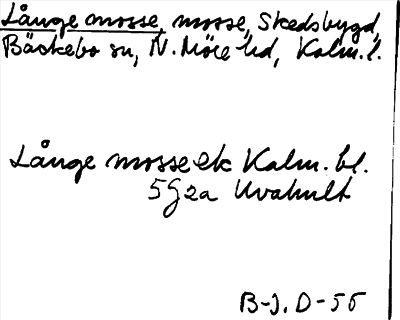 Långe mosse, mosse, Skedsbygd,
Bäckebo sn, N. Möre hd, Kalm. l.
Långe mosse ek Kalm. bl.
5G2a Uvahult
B-J. D-55